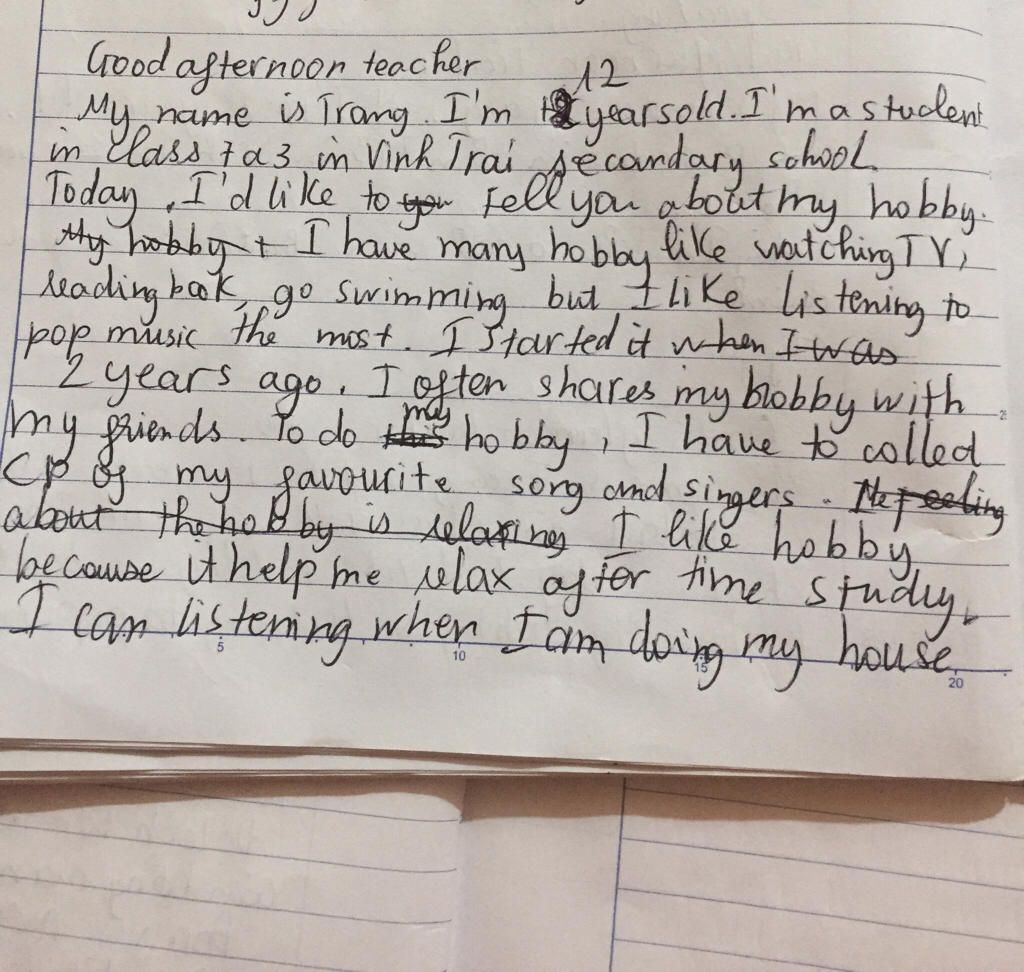 Good afternoon teacher
12
My name is Trang. I'm years old. I'm a student
in class 7a3 in Vinh Trai secandary school.
Today, I'd like to you tell you about my hobby.
My hobby t I have many hobby like watching TV,
reading book, go swimming but I like listening to
pop music the most. I started it when I was
2 years ago. I often shares my hobby with
my
my friends. To do this hobby, I have to colled
CP of my favourite song and singers. The feeling
about the hobby is relaxing I like hobby
because it help me relax after time study,
I can listening when I am doing my house
5 10 15 20